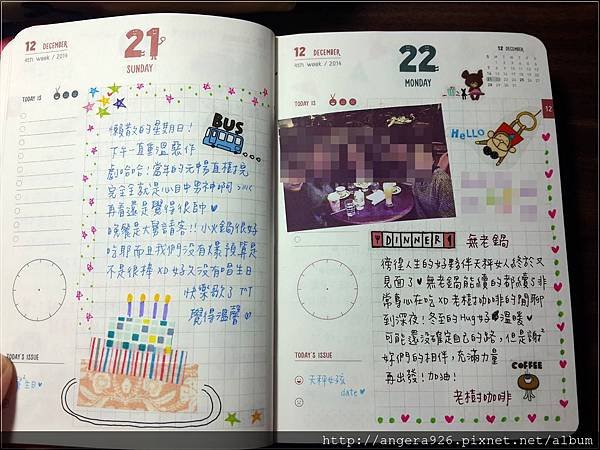 12 DECEMBER
4th week / 2014
21
SUNDAY
TODAY IS
BUS
懶散的星期日！
下午一直重溫惡作
劇哈哈！當年的元暢直樹
完全就是心目中男神啊
再看還是覺得很帥♥
晚餐是大舅請客!! 小火鍋很好
吃耶而且我們沒有爆預算是
不是很棒 XD 好久沒有唱生日
快樂歌了 TAT
覺得溫馨
TODAY'S ISSUE
生日♥
12 DECEMBER
4th week / 2014
22
MONDAY
12 DECEMBER
12
TODAY IS
HELLO
DINNER
無老鍋
徬徨人生的好夥伴天秤女人終於又
見面了♥ 無老鍋能續的都續了非
常專心在吃 XD 老樹咖啡的閒聊
到深夜！冬至的Hug好溫暖♥
可能還沒確定自己的路，但是謝²
好們的相伴，充滿力量
再出發！加油！
COFFEE
老樹咖啡
TODAY'S ISSUE
天秤女孩
date♥
http://angera926.pixnet.net/album